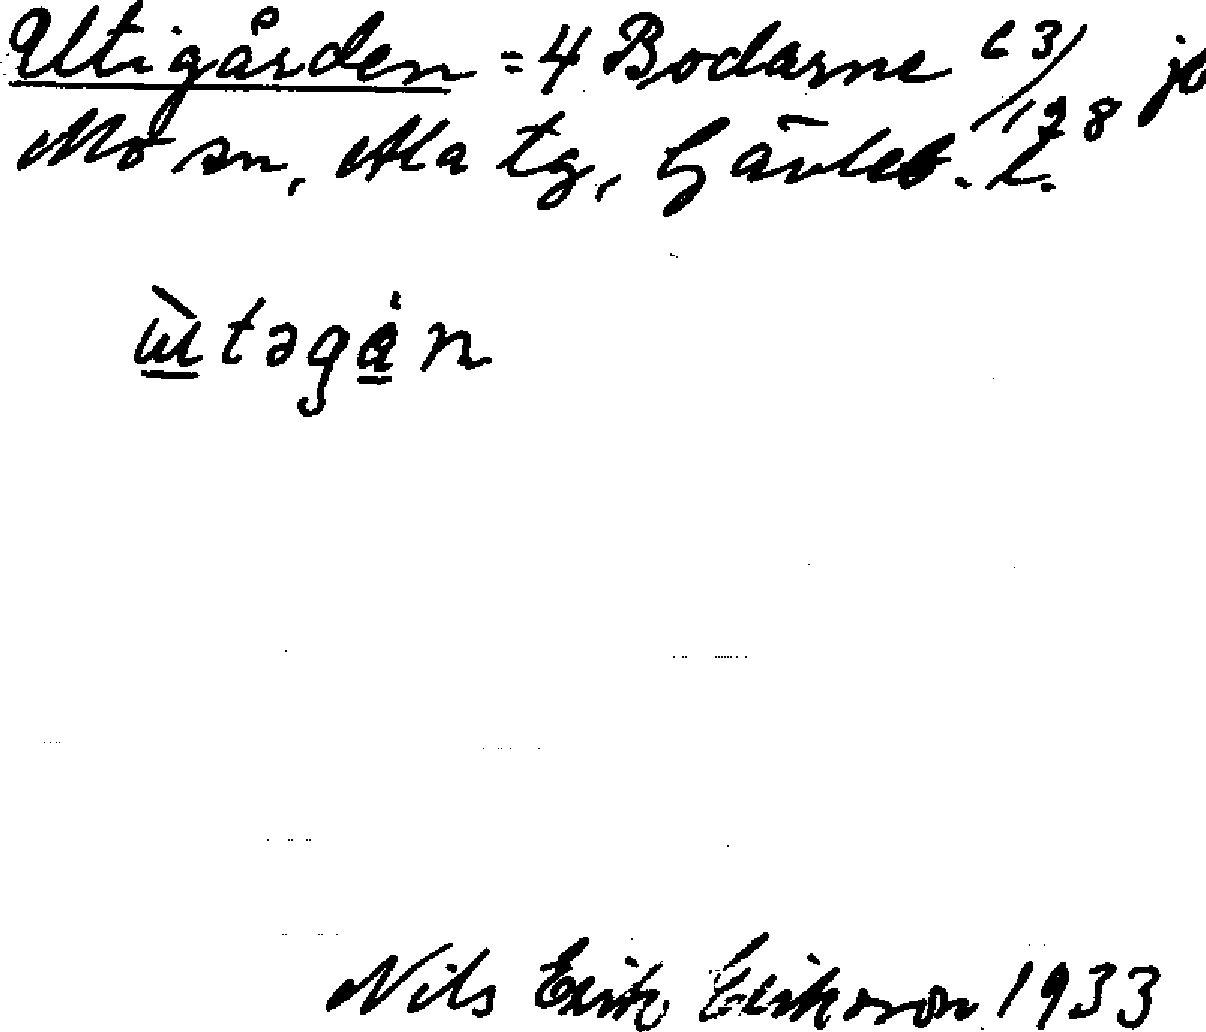 Utigården = 4 Bodarne 3/128
Mo sn, Ala tg, Gävleb. l.
ùtəgån
Nils Erik Eriksson 1933